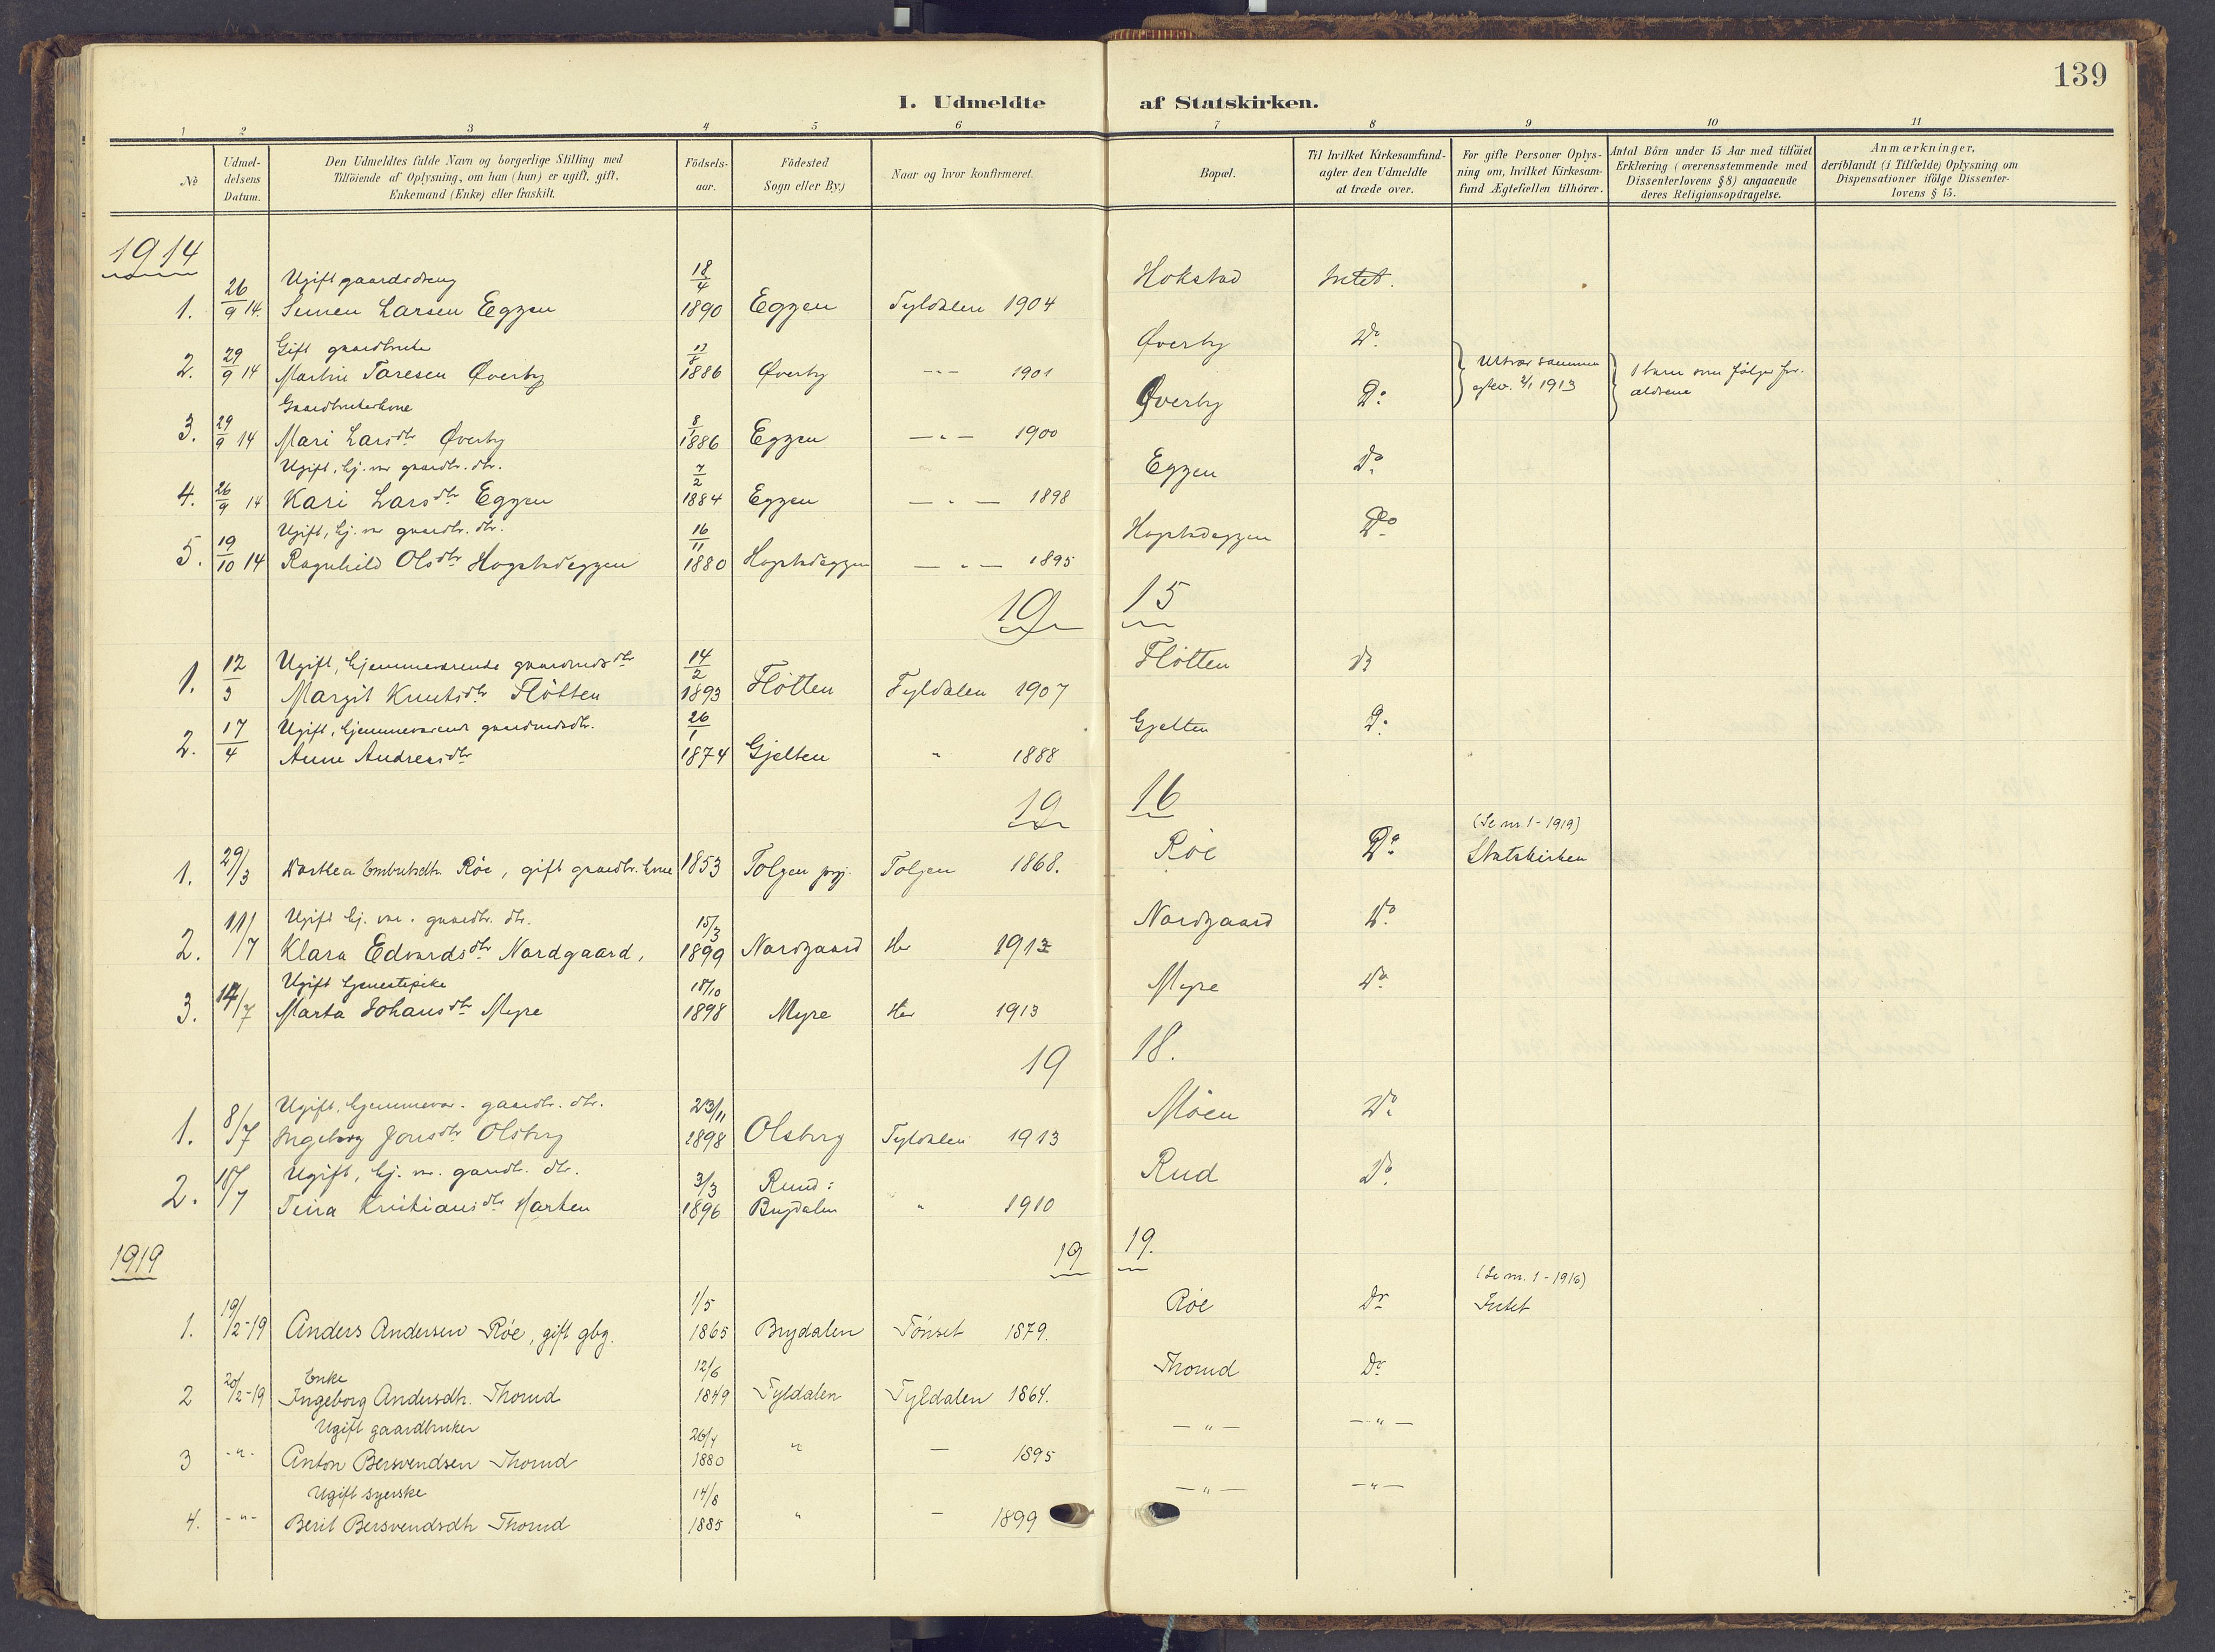 139
I. Udmeldte af Statskirken.
1 2 3 4 5 6 7 8 9 10 11
No
Udmel-
delsens
Datum.
Den Udmeldtes fulde Navn og borgerlige Stilling med
Tilföiende af Oplysning, om han (hun) er ugift, gift,
Enkemand (Enke) eller fraskilt.
Födsels-
aar.
Födested
Sogn eller By.)
Naar og hvor konfirmeret.
Bopæl.
Til hvilket Kirkesamfund-
agler den Udmeldte
at træde over.
For gifte Personer Oplys-
ning om, hvilket Kirkesam-
fund Ægtefællen tilhörer.
Antal Börn under 15 Aar med tilföiet
Erklæring (overensstemmende med
Dissenterlovens § 8) angaaende
deres Religionsopdragelse.
Anmærkninger,
deriblandt (i Tilfælde) Oplysning om
Dispensationer ifölge Dissenter-
lovens § 15.
1914
Ugift gaardsdreng 18/4 Hokstad Intet.
1. 26/9 14. Simen Larsen Eggen 1890 Eggen Tyldalen 1904
Gift gaardbruker Øverby Do
2. 29/9 14 Martin Taresen Øverby 1886 Øverby -"- 1901
Gaardbrukerkone Øverby Do
3. 29/9 14 Mari Larsdtr Øverby 8/1 1886 Eggen -"- 1900
Ugift, hj. vær gaardbr. dtr. 7/2 Eggen Do
4. 26/9 14 Kari Larsdtr Eggen 1884 Eggen -"- 1898
Ugift, hj. vær gaardbr. dtr. 16/11 Hogstadeggen Do
5. 19/10 14 Ragnhild Olsdtr Hogstadeggen 1880 Hogstadeggen -"- 1895
1 barn som følger for-
ældrene
19 15
Ugift, hjemmeværende gaardmdsdtr 14/2 Fløtten Do
1. 12/3 Margit Knutsdtr Fløtten 1893 Fløtten Tyldalen 1907
Ugift, hjemmeværende gaardmdsdtr. 26/1 Gjelten Do
2. 17/4 Anne Andreasdtr 1874 Gjelten " 1888
19 16
(Se nr. 1 - 1919)
1. 29/3 Embretsdtr. Røe, gift gaardbr. kone 1853 Tolgen prgj. Tolgen 1868. Røe Do Statskirken
Ugift hj. vær. gaardbr. dtr. 15/3 Nordgaard Do
2. 11/7 Klara Edvardsdtr Nordgaard, 1899 Nordgaard Her 1913
Ugift tjenestepike 18/10 Myre Do
3. 14/7 Marta Johansdtr Myre 1898 Myre Her 1913
19 18.
Ugift, hjemmevær. gaardbr. dtr. 23/11 Möen Do
1. 8/7 Ingeborg Jonsdtr Olsberg 1898 Olsberg Tyldalen 1913
Ugift, hj. vær. gaardbr. dtr. 3/3 Ruud: Rud Do
2. 18/7 Kristiansdtr 1896 Brydalen " 1910
1919 19 19.
(Se nr. 1 - 1916)
1/5 Røe Do Intet
1. 19/2-19 Anders Andersen Röe, gift gbg. 1865 Brydalen Tönset 1879.
Enke 12/6 Thorud Do
2 20/2-19 Ingeborg Andersdtr. Thorud 1849 Tyldalen Tyldalen 1864.
Ugift gaardbruker 26/4 -"- -"-
3 -"- Anton Bersvendsen Thorud 1880 " - 1895
Ugift syerske 14/8 -"- -"-
4. -"- Berit Bersvendsdtr Thorud 1885 " - 1899